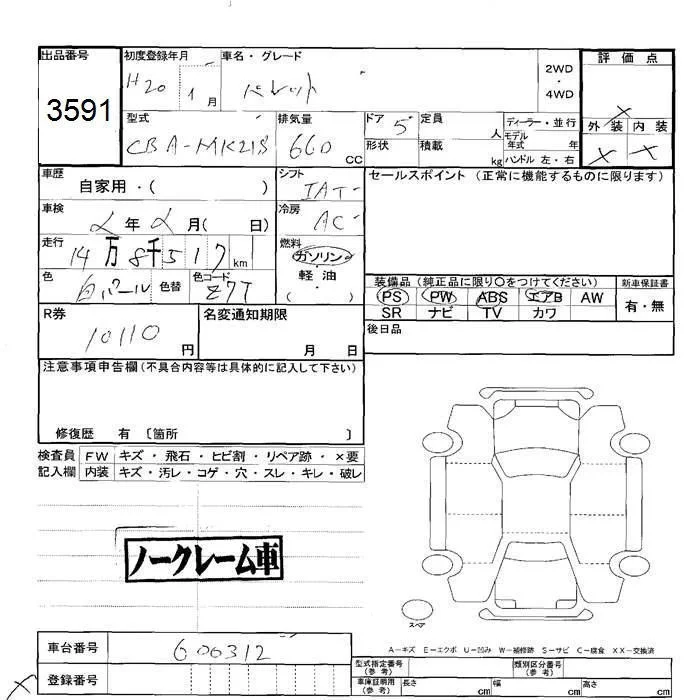 出品番号
3591
初度登録年月
H20 1月
車名・グレード
パレット
2WD
・
4WD
評価点
×
外装 内装
× ×
型式
CBA-MK21S
排気量
660 CC
ドア 5
形状
定員 人
積載 kg
ディーラー・並行
モデル年式 年
ハンドル 左・右
車歴
自家用・( )
シフト
IAT
セールスポイント (正常に機能するものに限ります)
車検
年 月( 日)
冷房
AC
走行
14万8千517km
燃料
ガソリン
軽油
( )
色
白パール
色替
色コード
Z7T
装備品 (純正品に限り○をつけてください)
PS PW ABS エアB AW
SR ナビ TV カワ
新車保証書
有・無
R券
10110 円
名変通知期限
月 日
後日品
注意事項申告欄(不具合内容等は具体的に記入して下さい)
修復歴 有 〔箇所 〕
検査員記入欄
FW キズ・飛石・ヒビ割・リペア跡・×要
内装 キズ・汚レ・コゲ・穴・スレ・キレ・破レ
ノークレーム車
スペア
A-キズ E-エクボ U-凹み W-補修跡 S-サビ C-腐食 XX-交換済
車台番号
600312
登録番号
型式指定番号(参考)
類別区分番号(参考)
車庫証明用(参考)
長さ cm
幅 cm
高さ cm